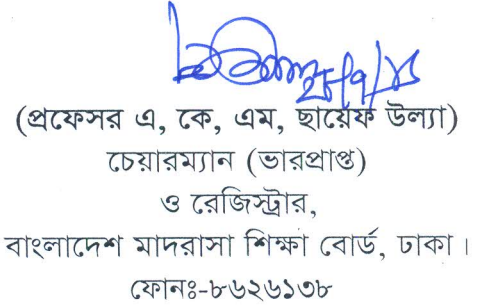 (প্রফেসর এ, কে, এম, ছায়েফ উল্যা)
চেয়ারম্যান (ভারপ্রাপ্ত)
ও রেজিস্ট্রার,
বাংলাদেশ মাদরাসা শিক্ষা বোর্ড, ঢাকা।
ফোনঃ-৮৬২৬১৩৮